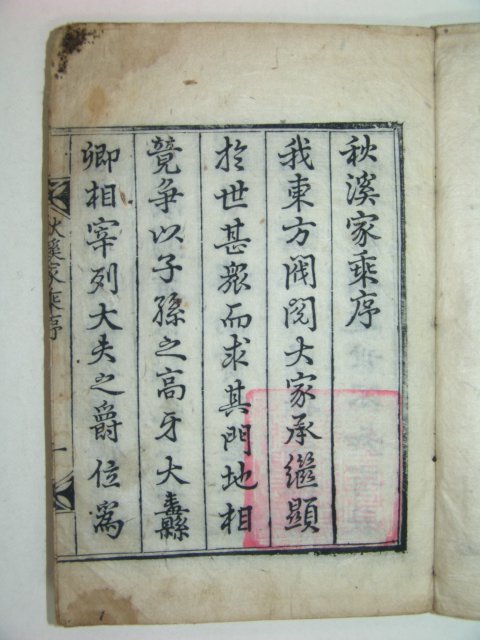 秋溪家乘序
我東方閥閱大家承繼顯
於世甚衆而求其門地相
競爭以子孫之高牙大纛
卿相宰列大夫之爵位爲
秋溪家乘序
一